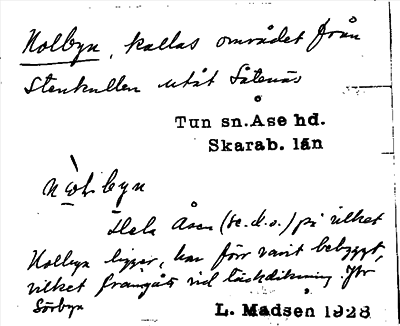 Nolbyn, kallas området från
Stenkullen utåt Såtenäs
Tun sn. Åse hd.
Skarab. län
nòlbyn
Hela Åsen (se.d.o.) på vilket
Nolbyn ligger, har förr varit bebyggt,
vilket framgått vid täckdikning. Jfr
Sörbyn
L. Madsen 1928